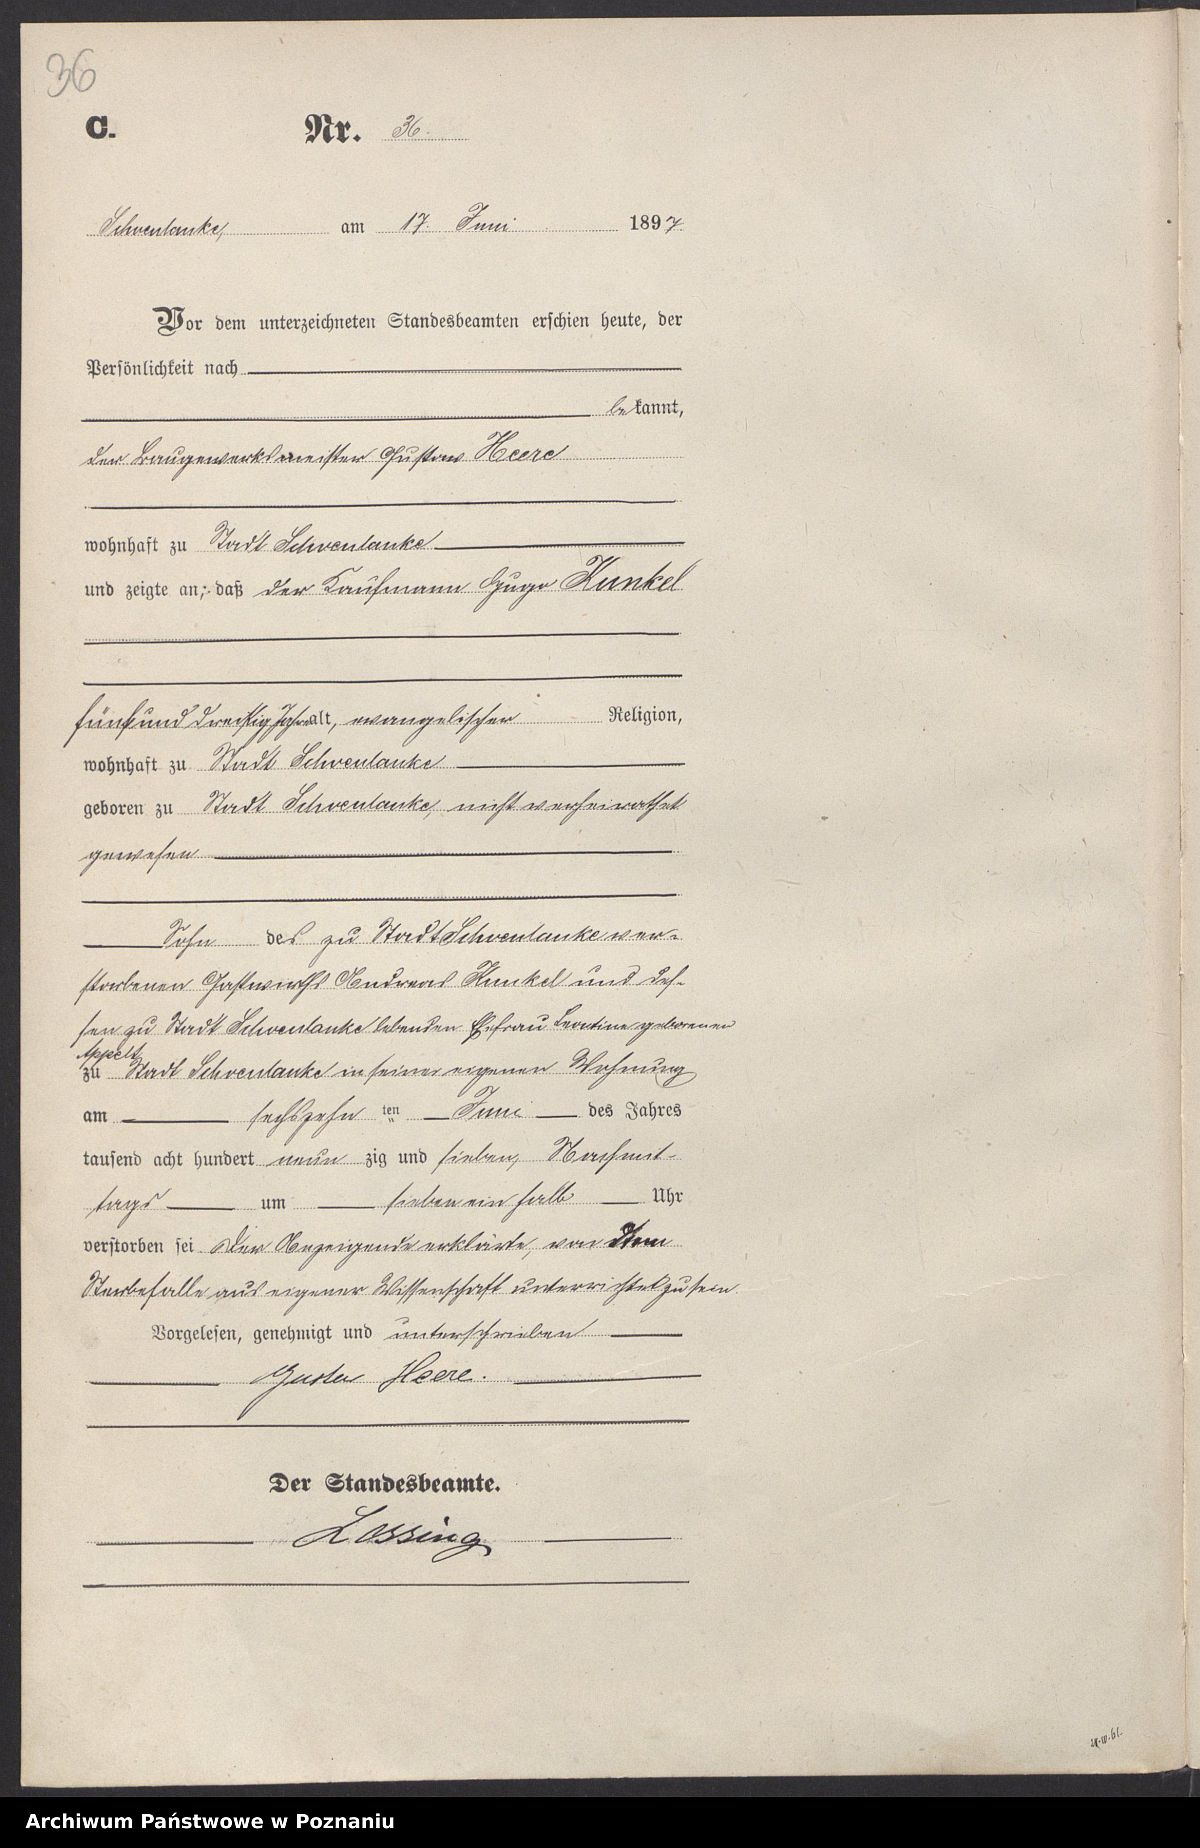 36
C. Nr. 36.
Schoenlanke, am 17. Juni 1897
Vor dem unterzeichneten Standesbeamten erschien heute, der
Persönlichkeit nach
bekannt,
der Baugewerksmeister Gustav Heere
wohnhaft zu Stadt Schoenlanke
und zeigte an, daß der Kaufmann Hugo Kunkel
fünfund dreißig Jahre alt, evangelischer Religion,
wohnhaft zu Stadt Schoenlanke
geboren zu Stadt Schoenlanke, nicht verheirathet
gewesen
Sohn des zu Stadt Schoenlanke ver-
storbenen Gastwirths Andreas Kunkel und des-
sen zu Stadt Schoenlanke lebenden Ehefrau Leontine geborenen
Appelt
zu Stadt Schoenlanke in seiner eigenen Wohnung
am sechszehn ten Juni des Jahres
tausend acht hundert neun zig und sieben, Nachmit-
tags um sieben ein halb Uhr
verstorben sei Der Anzeigende erklärte, von dem
Sterbefalle aus eigener Wissenschaft unterrichtet zu sein
Vorgelesen, genehmigt und unterschrieben
Gustav Heere.
Der Standesbeamte.
Lossing
Archiwum Państwowe w Poznaniu